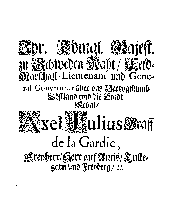 Ihr. Königl. Majest.
zu Schweden Raht / Feld-
Marschall-Lieutenant und Gene-
ral Gouverneur über das Hertzogthumb
Ehstland und die Stadt
Reval /
Axel Julius Graff
de la Gardie,
Freyherr / Herr auf
und Freyberg / ꝛc.